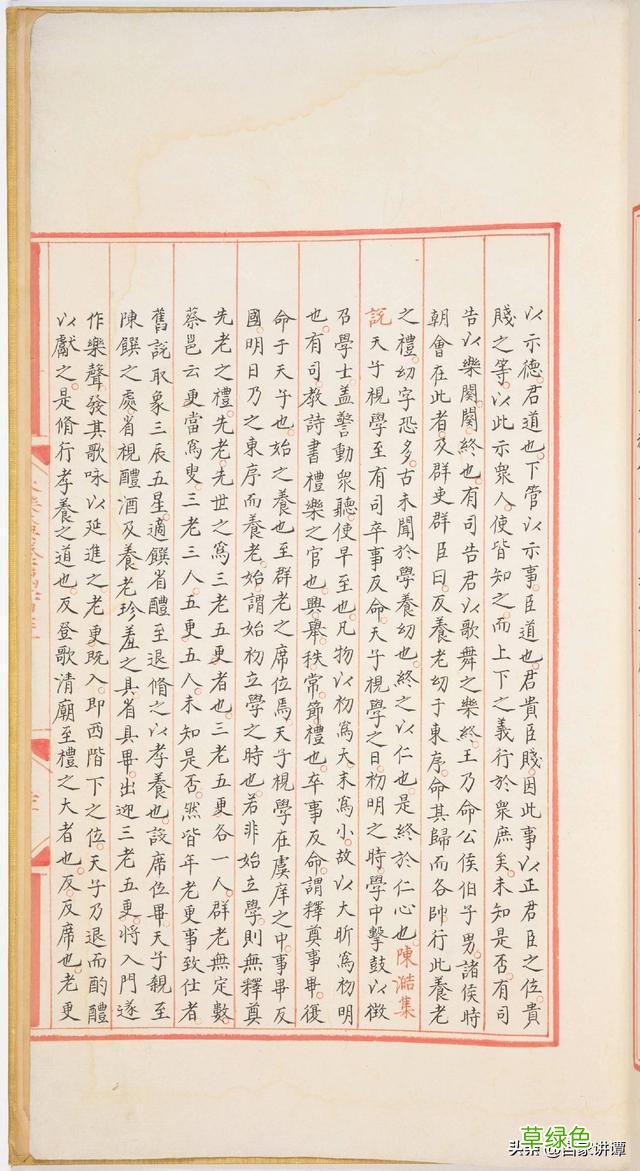 以示德君道也下管以示事臣道也君貴臣賤因此事以正君臣之位貴
賤之等以此示衆人使皆知之而上下之義行於衆庶矣未知是否有司
告以樂闋闋終也有司告君以歌舞之樂終王乃命公侯伯子男諸侯時
朝會在此者及群吏群臣曰反養老幼于東序命其歸而各帥行此養老
之禮幼字恐多古未聞於學養幼也終之以仁也是終於仁心也陳澔集
說天子視學至有司卒事反命天子視學之日初明之時學中擊鼓以徵
召學士盖警動衆聽使早至也凡物以初爲大末爲小故以大昕爲初明
也有司教詩書禮樂之官也興舉秩常節禮也卒事反命謂釋奠事畢復
命于天子也始之養也至群老之席位焉天子視學在虞庠之中事畢反
國明日乃之東序而養老始謂始初立學之時也若非始立學則無釋奠
先老之禮先老先世之爲三老五更者也三老五更各一人群老無定數
蔡邕云更當爲叟三老三人五更五人未知是否然皆年老更事致仕者
舊說取象三辰五星適饌省醴至退脩之以孝養也設席位畢天子親至
陳饌之處省視醴酒及養老珍羞之具省具畢出迎三老五更將入門遂
作樂聲發其歌咏以延進之老更既入即西階下之位天子乃退而酌醴
以獻之是脩行孝養之道也反登歌清廟至禮之大者也反反席也老更
草绿色
头条 @百家讲谭